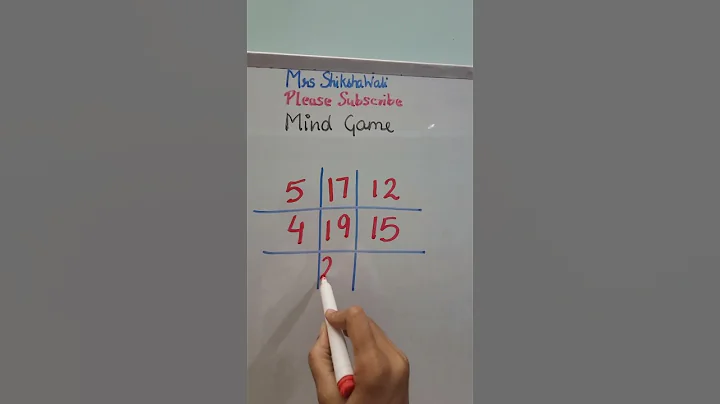 Mrs Shikshawali
Please Subscribe
Mind Game
5 17 12
4 19 15
2